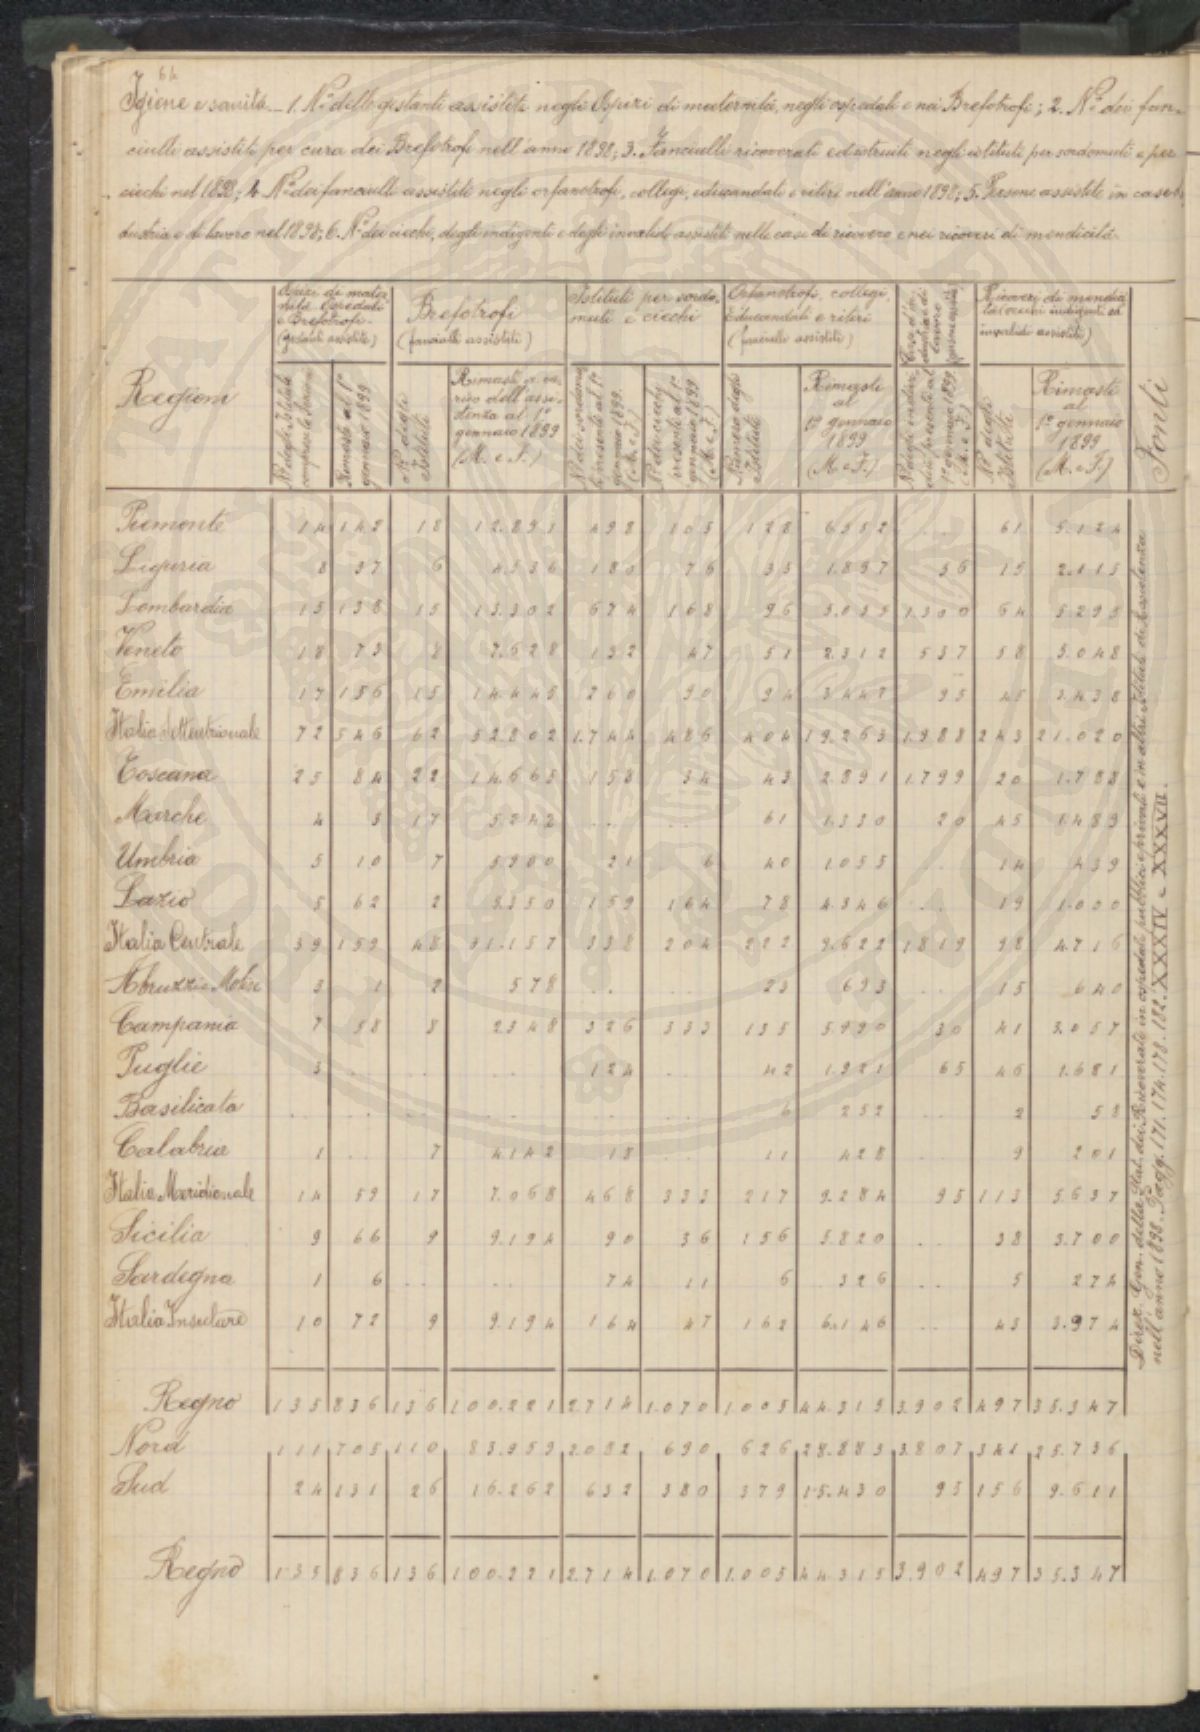 64
Igiene e sanità. - 1. N.o delle gestanti assistite negli Ospizi di maternità, negli ospedali e nei Brefotrofi; 2. N.o dei fan-
ciulli assistiti per cura dei Brefotrofi nell'anno 1898; 3. Fanciulli ricoverati ed istruiti negli istituti per sordomuti e per
ciechi nel 1898; 4. N.o dei fanciulli assistiti negli orfanotrofi, collegi, educandati e ritiri nell'anno 1898; 5. Persone assistite in case d'in-
dustria e di lavoro nel 1898; 6. N.o dei ciechi, degli indigenti e degli invalidi assistiti nelle case di ricovero e nei ricoveri di mendicità.
Regioni
Ospizi di mater-
nità Ospedali
e Brefotrofi.
(gestanti assistite)
Brefotrofi
(fanciulli assistiti)
Istituti per sordo-
muti e ciechi
Orfanotrofi, collegi,
Educandati e ritiri
(fanciulli assistiti)
Case d'in-
dustria e di
lavoro
Ricoveri di mendici-
tà (ciechi indigenti ed
invalidi assistiti)
Fonti
N.o degli Istituti
Rimasti al 1o
gennaio 1899
N.o degli
Istituti
Rimasti a ca-
rico dell'assi-
stenza al 1o
gennaio 1899
(M. e F.)
N.o dei sordomu-
ti presenti al 1o
gennaio 1899.
(M. e F.)
N.o dei ciechi
presenti al 1o
gennaio 1899
(M. e F.)
Numero degli
Istituti
Rimasti
al
1o gennaio
1899
(M. e F.)
1o gennaio 1899
(M. e F.)
N.o degli
Istituti
Rimasti
al
1o gennaio
1899
(M. e F.)
Piemonte 14 142 18 12.891 498 105 128 6552 .. 61 5.124
Liguria 8 37 6 4.536 180 76 35 1.897 56 15 2.115
Lombardia 15 138 15 13.302 674 168 96 5.055 1.300 64 5.295
Veneto 18 73 8 7.628 132 47 51 2.312 537 58 5.048
Emilia 17 156 15 14.445 260 90 94 3.447 95 45 3.438
Italia Settentrionale 72 546 62 52.802 1.744 486 404 19.263 1.988 243 21.020
Toscana 25 84 22 14.665 158 34 43 2.891 1.799 20 1.788
Marche 4 3 17 5242 .. .. 61 1.330 20 45 1.489
Umbria 5 10 7 5900 21 6 40 1.055 .. 14 439
Lazio 5 62 2 5.350 159 164 78 4.346 .. 19 1.000
Italia Centrale 39 159 48 31.157 338 204 222 9.622 1819 98 4.716
Abruzzi e Molise 3 1 2 578 .. .. 23 693 .. 15 640
Campania 7 58 8 2348 326 333 135 5.990 30 41 3.057
Puglie 3 .. .. .. 124 .. 42 1.921 65 46 1.681
Basilicata .. .. .. .. .. .. 6 252 .. 2 58
Calabria 1 .. 7 4142 18 .. 11 428 .. 9 201
Italia Meridionale 14 59 17 7.068 468 333 217 9.284 95 113 5.637
Sicilia 9 66 9 9.194 90 36 156 5.820 .. 38 3.700
Sardegna 1 6 .. .. 74 11 6 326 .. 5 274
Italia Insulare 10 72 9 9.194 164 47 162 6.146 .. 43 3.974
Regno 135 836 136 100.221 2.714 1.070 1.005 44.315 3.902 497 35.347
Nord 111 705 110 83.959 2.082 690 626 28.885 3.807 341 25.736
Sud 24 131 26 16.262 632 380 379 15.430 95 156 9.611
Regno 135 836 136 100.221 2.714 1.070 1.005 44.315 3.902 497 35.347
Direz. Gen. della Stat. dei Ricoverati in ospedali pubblici e privati e in altri Istituti di Assistenza
nell'anno 1898. Pagg. 171. 174. 178. 182. XXXIV e XXXVII.